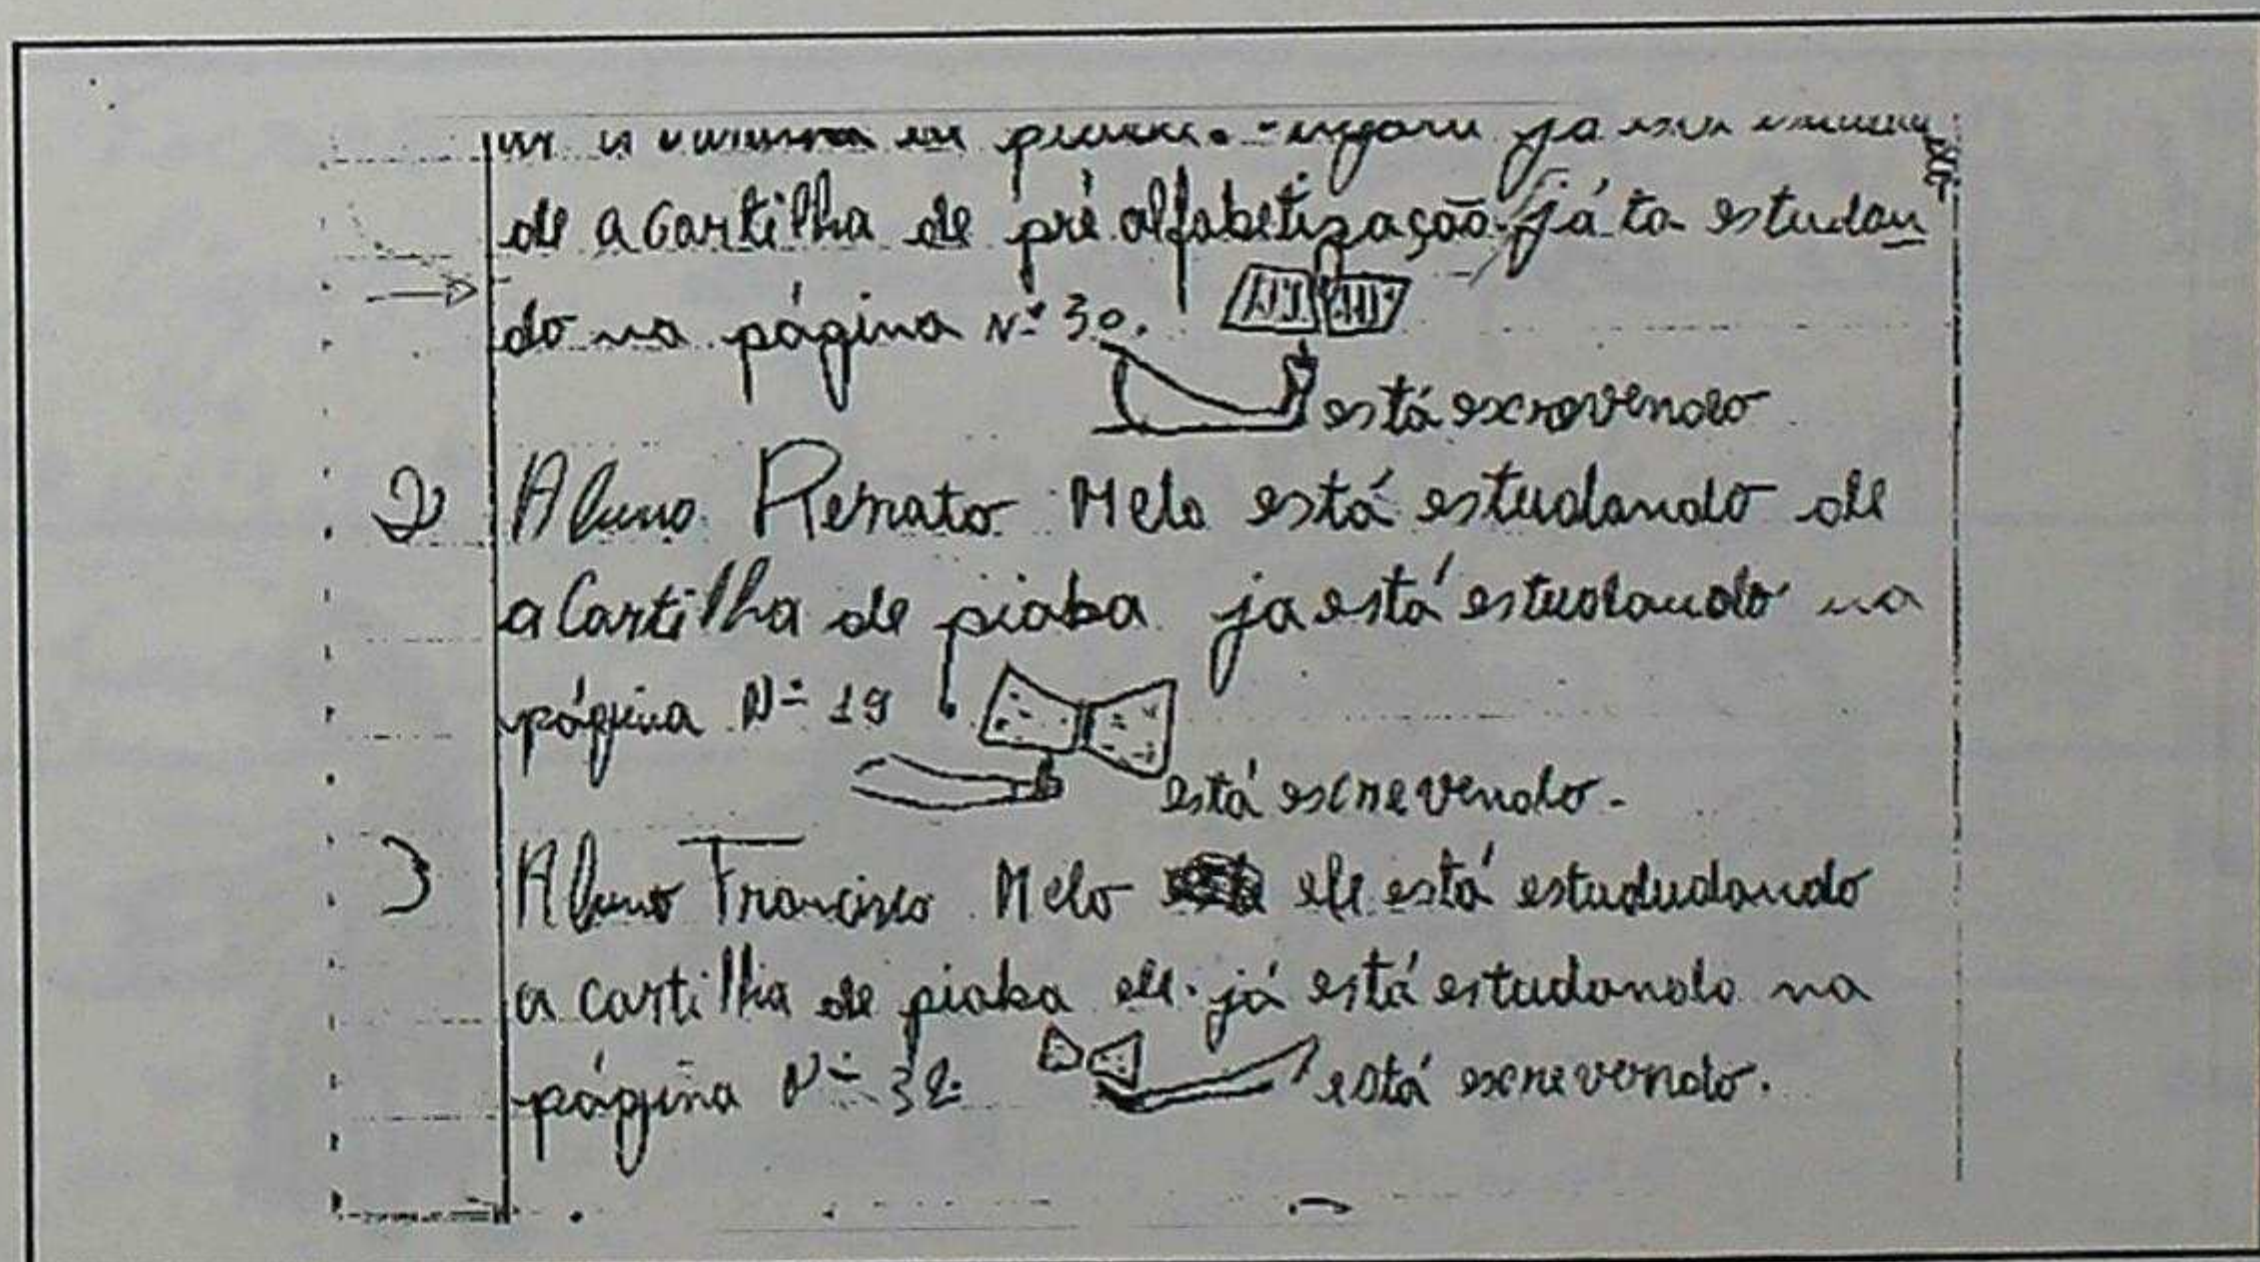 já
de a cartilha de pré alfabetização já ta estudan
do na página Nº 30.
está escrevendo
2) Aluno Renato Melo está estudando de
a Cartilha de piaba ja está estudando na
página Nº 19
está escrevendo.
3 Aluno Francisco Melo ele está estududando
a cartilha de piaba ele já está estudando na
página Nº 32.
está escrevendo.